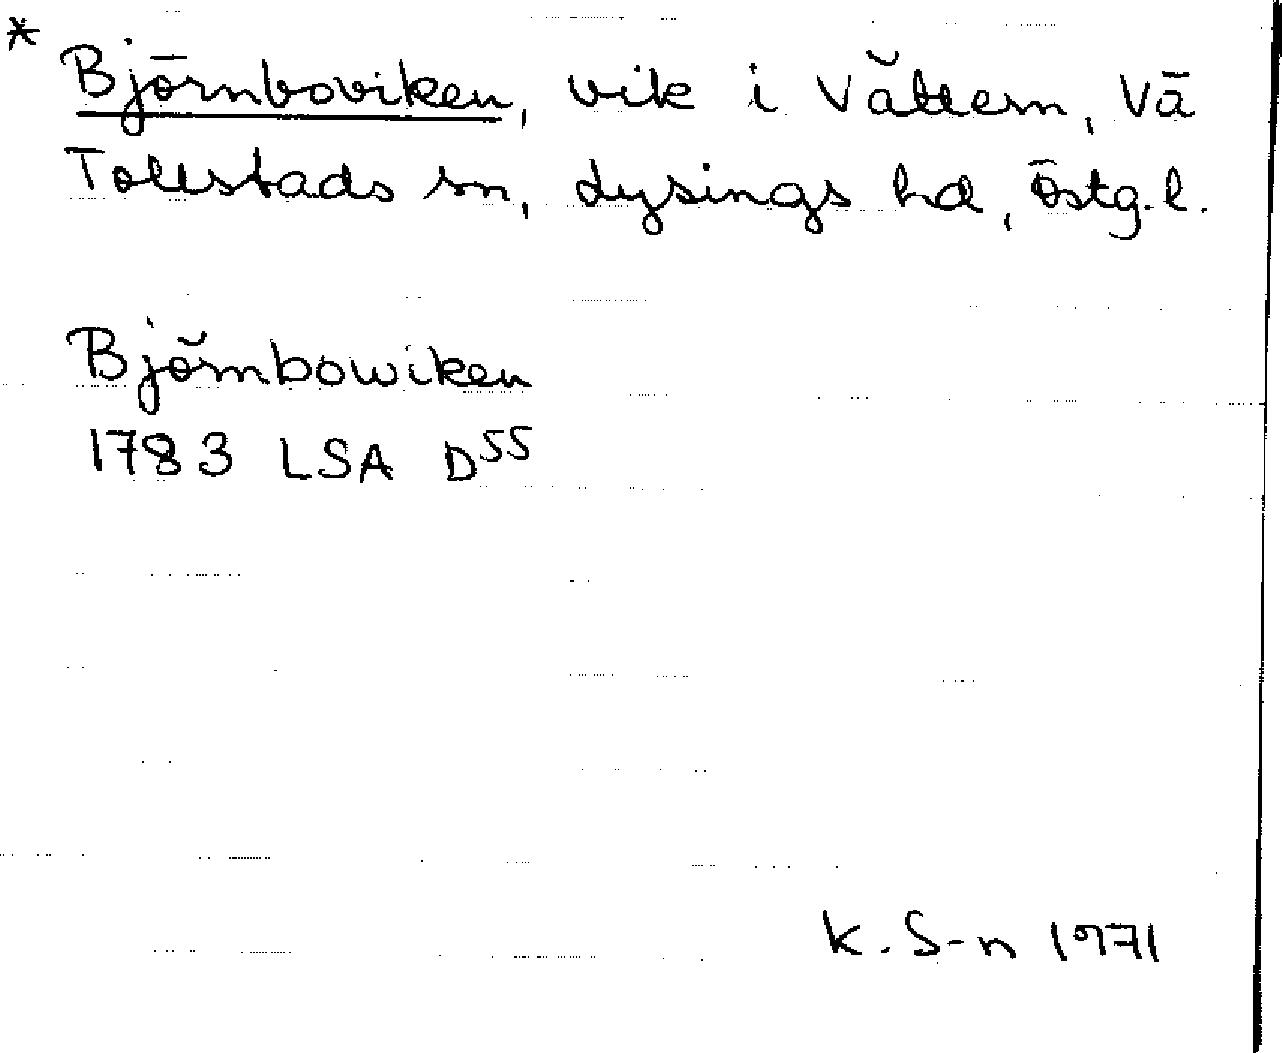 * Björnboviken, vik i Vättern, Vä
Tollstads sn, Lysings hd, Östg.l.
Björnbowiken
1783 LSA D55
K. S-n 1971